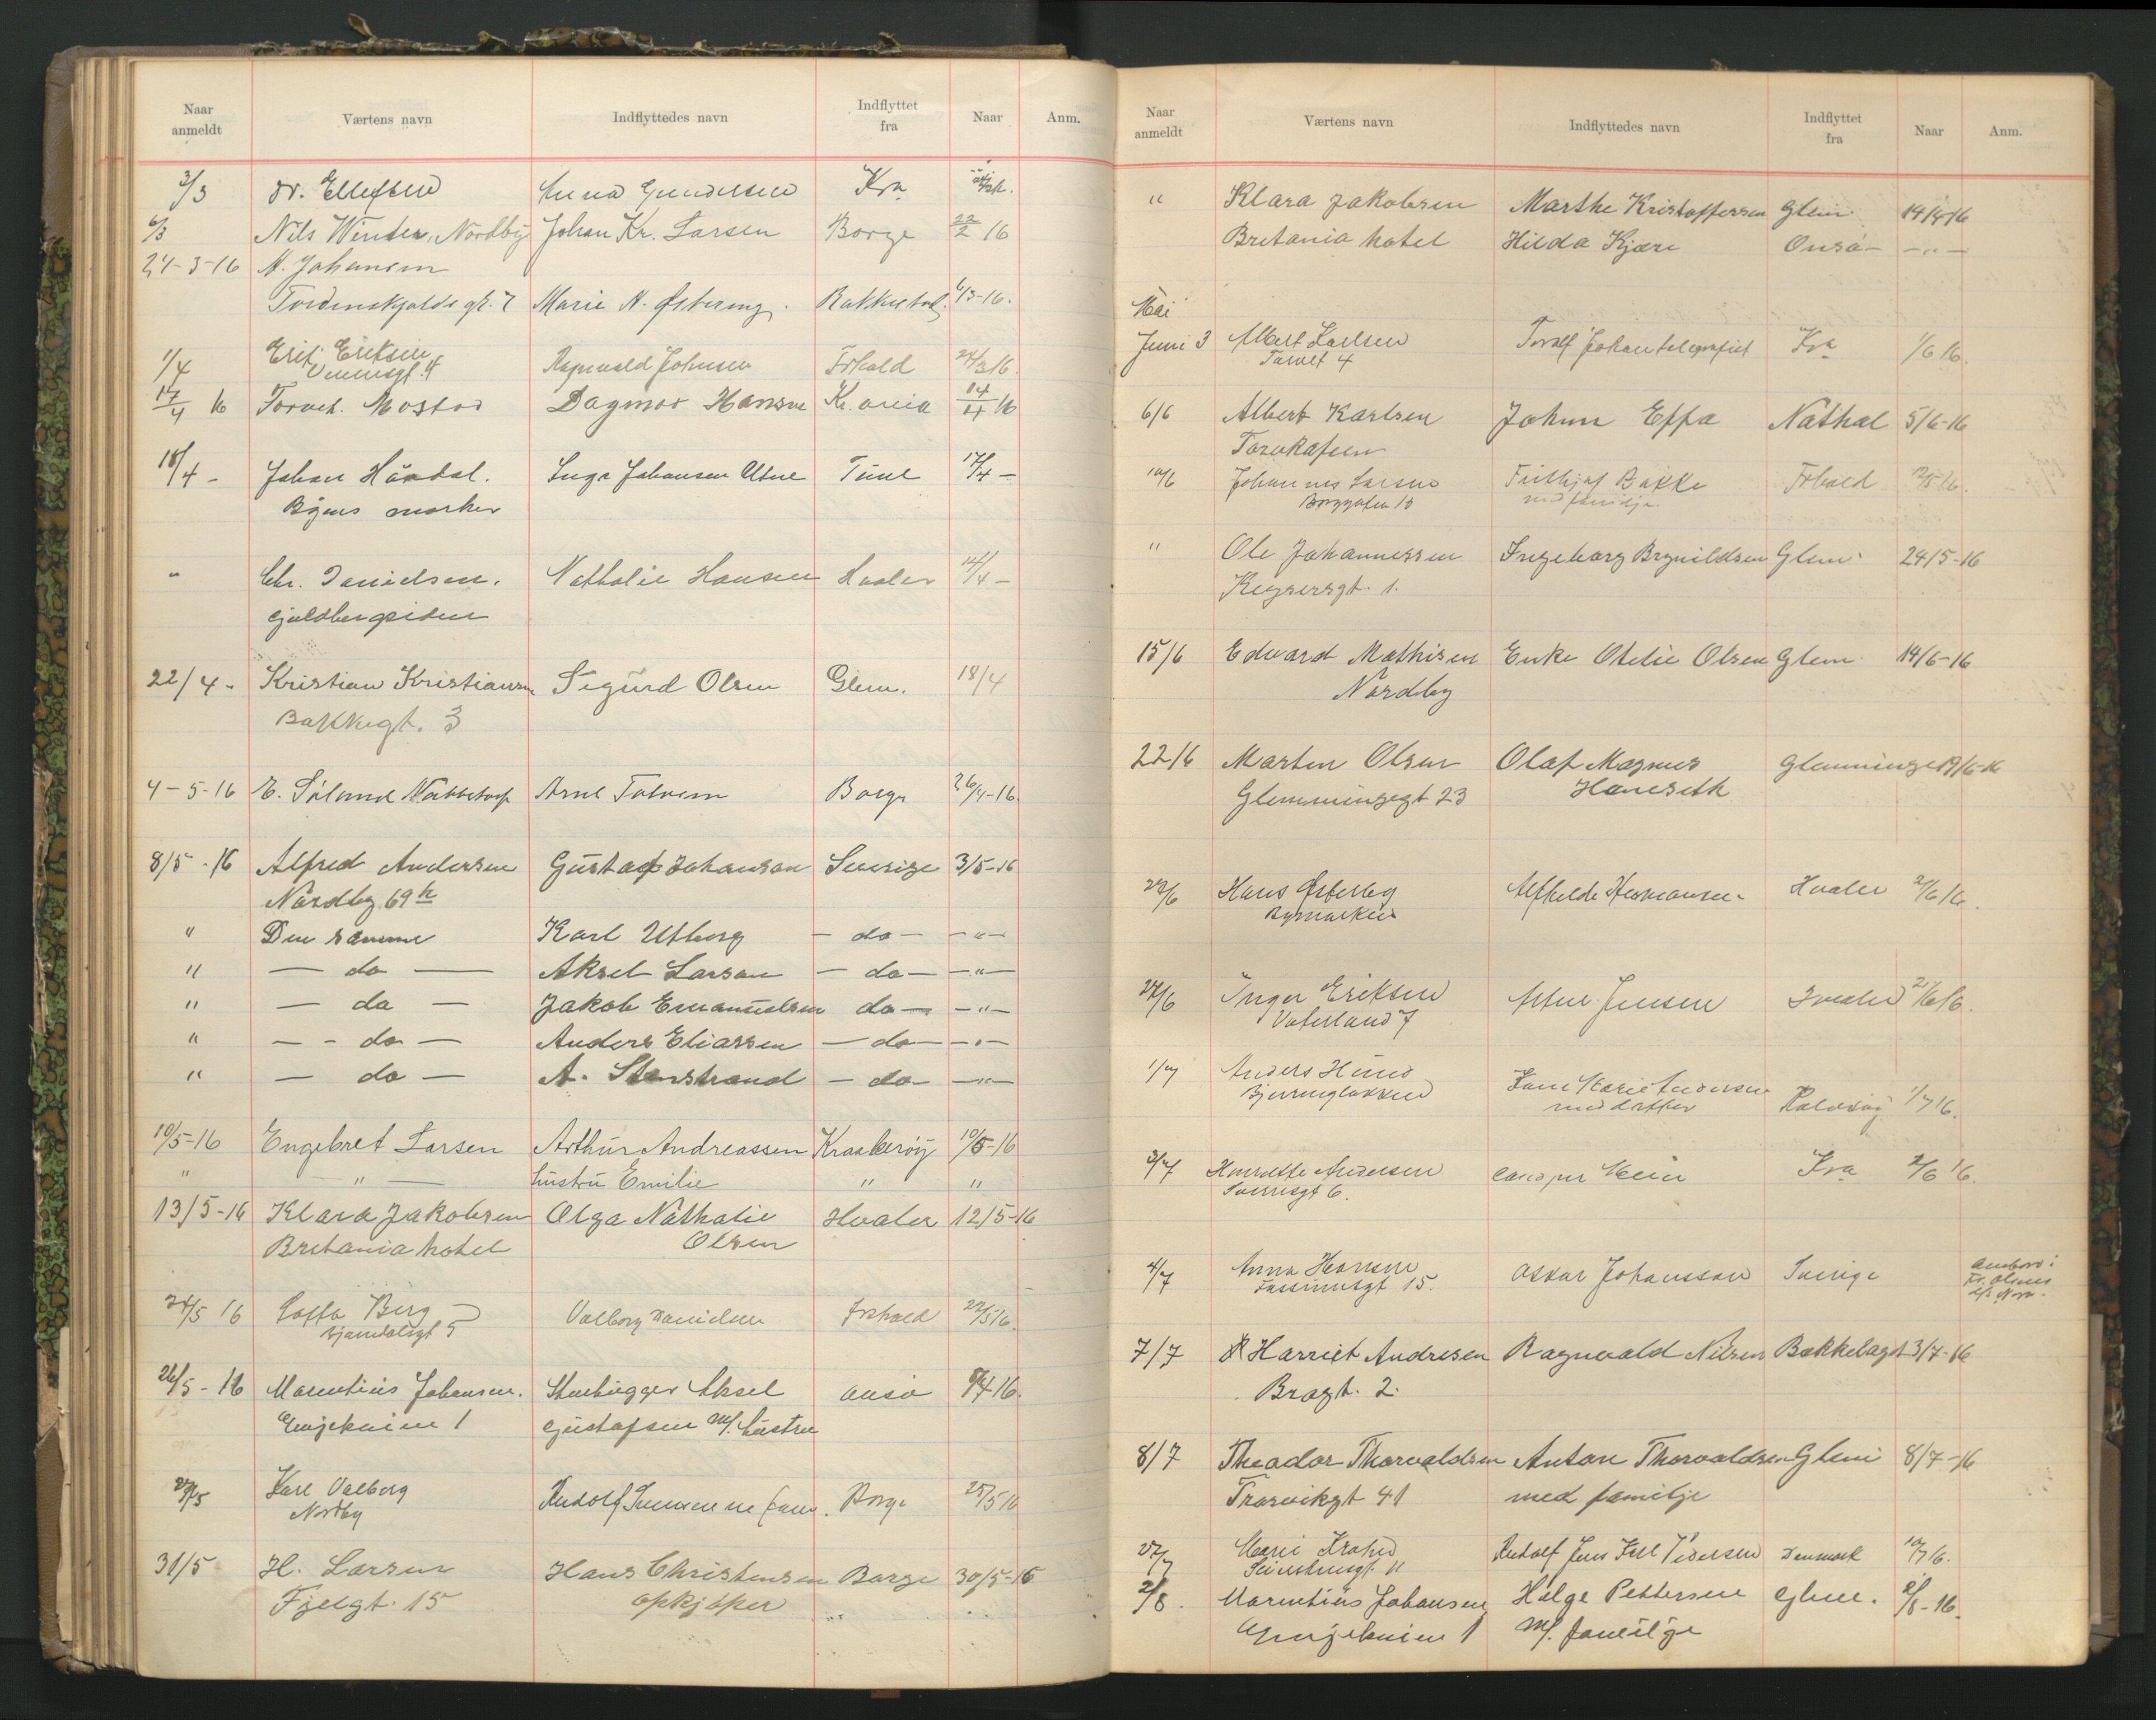 Naar anmeldt Værtens navn Indflyttedes navn Indflyttet fra Naar Anm.
3/3 Dr. Ellefsen Anna Gundersen Kra
6/3 Nils Winter, Nordby Johan Kr. Larsen Borge 22/2 16
24-3-16 M. Johansen
Tordenskjolds gt. 7 Marie N. Østeng. Bakkestad. 6/3-16.
1/4 Erik Eriksen Ragnvald Johnsen Frhald 24/3 16.
17/4 16 Torvet. Mostad Dagmar Hansen Kr.ania 14/4 16
18/4 - Johan Hårdal. Inga Johansen Utne Tune 17/4 -
Byens marker
" Chr. Danielsen. Nathalie Hansen Hvaler 14/4 -
Guldbergsiden
22/4 - Kristian Kristiansen Sigurd Olsen Glem. 18/4
Bakkegt. 3
4-5-16 E. Sølund Nabbetorp Arne Borge 26/4-16.
8/5-16 Alfred Andersen Gustaf Johanson Sverige 3/5-16
Nordby 69 h
" Den samme Karl Utberg - do - - " -
" - do - Aksel Larson - do - - " -
" - do - Jakob Emanuelsen do - - " -
" - - do - Anders Eliassen - do - - " -
" - do - A. Stenstrand - do - - " -
10/5-16 Engebret Larsen Arthur Andreassen Kraakerøy 10/5-16
" - " - hustru Emilie " "
13/5-16 Klara Jakobsen Olga Nathalie Hvaler 12/5-16
Britania hotel Olsen
24/5 16 Lotta Berg Valborg Danielsen Frhald 22/5 16.
5
26/5-16 Marentius Johansen. Stenhugger Aksel Onsø 16.
Engekleiven 1 Gustafsen M/. hustru
Karl Valberg Rudolf Svensen m fam. Borge 25/5 16
Nordby
31/5 H. Larsen Hans Christensen Borge 30/5-16
Fjeldgt. 15 opkjøper
Naar anmeldt Værtens navn Indflyttedes navn Indflyttet fra Naar Anm.
" Klara Jakobsen Marthe Kristoffersen Glem 14/4 16
Britania hotel Hilda Kjære Onsø - - " -
Mai
Juni 3 Albert Karlsen Toralf Johan telegrafist Kra 1/6 16.
Torvet 4
6/6 Albert Karlsen Johan Effa Nathal 5/6-16
Torvkafeen
10/6 Johannes Larsen Frithjof Bakke Frhald 16.
Borggaten 13 med familje.
" Ole Johannessen Ingeborg Brynildsen Glem. 24/5-16
Keysersgt. 1.
15/6 Edvard Mathisen Enke Otelie Olsen Glem. 14/6-16
Nordby
22/6 Marten Olsen Olaf Magnus Glemminge 19/6-16
Glemmingegt 23 Haneseth
22/6 Hans Østerby Alfhilde Hermansen. Hvaler 21/6 16.
Bymarken
24/6 Inger Eriksen Artur Jensen 21/6 16.
Vaterland 7
1/7 Anders Hund Marie Andersen 1/7 16.
Bjerringløkken med datter
3/7 Henriette Andersen Kra 2/6 16.
6.
4/7 Anna Hansen Oskar Johansson Sverige
15.
7/7 Harriet Andresen Ragnvald Nilsen Bakkelaget 3/7-16
Bragt. 2.
8/7 Theodor Thorvaldsen Anton Thorvaldsen Glem 8/7-16
Trosvikgt 41 med familje
27/7 Marie Rudolf Jens Pedersen Danmark 10/7 16.
11
2/8. Marentius Johansen Helge Pettersen Glem. 2/8-16.
Engekleiven 1 M/. familje